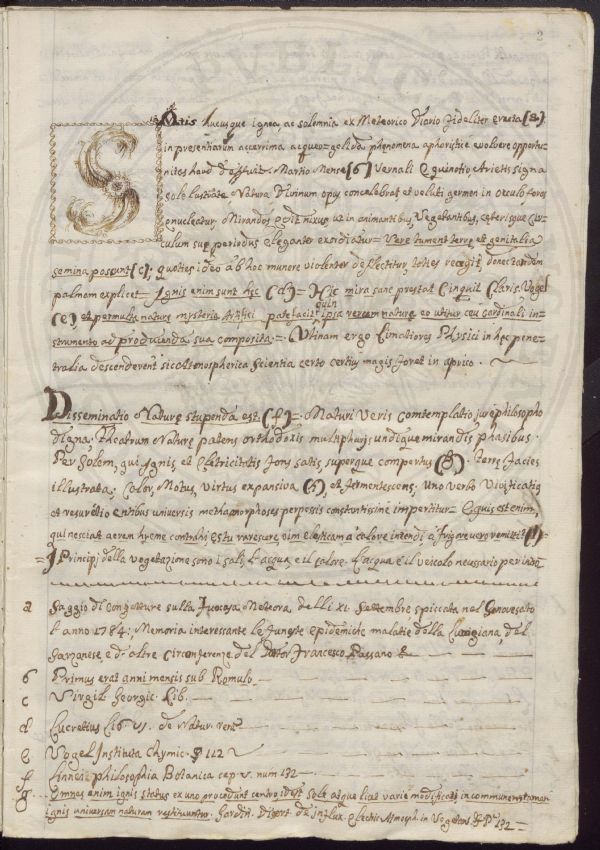 2
Satis hucusque ignea, ac solemnia ex Meteorico Diario fideliter evecta (a)
in presentiarum acerrima aqueo=gelida phenomena aphoristice evolvere opportu-
nitas haud Martio Mense (b) Vernali Equinotio, Arietis signa
Sole lustrante Natura Divinum opus concelebrat, et veluti germen in oculo foros
enucleatur. Mirandus nixus uz in animantibus, Vegetantibus, ceterisque Cir-
culum sue periodus eleganter = Vere tument terre, et genitalia
semina poscunt (c); quoties ideo ab hoc munere violenter deflectitur, toties recegit, donec tandem
palmam explicet = Ignis enim sunt hec (d) = Hic mira sane prestat Cinquil Claris. Vogel
(e), et permulta nature mysteria Artifici patefacit quin ipsa verum nature eo utitur ceu cardinali in-
strumento ad producenda sua composita = Utinam ergo limatiores Physici in hec pene-
tralia descenderent sic Atmospherica Scientia certo certius magis foret in aprico.
Disseminatio Nature stupenda est (f) = Maturi Veris comtemplatio jure philosopho
digna; Theatrum Nature patens orthodoxis multiphariis undique mirandis phasibus.
Per Solem, qui Ignis, et Eletricitatis fons satis, superque compertus (g). Terre facies
illustrata; Calor, Motus, virtus expansiva (h), et fermentescens; uno verbo Vivificatio,
et resurectio entibus universis methamorphoses perpessis constantissime impertitur = Equis est enim,
qui nesciat aerem hyeme contrahi estu rarescere, vim elasticam a calore intendi a frigore vero remitti? (i) =
= I Principj della vegetazione sono i sali, l'acqua, e il calore. L'acqua è il veicolo necessario per intro
a Saggio di Congetture sulla Focosa Meteora delli xi Settembre spiccata nel Genovesato
l'anno 1784; Memoria interessante le funeste epidemiche malatie della Lunigiana, del
Sarzanese, e d'altre Circonferenze del Dottor Francesco Passano &
b Primus erat anni mensis sub Romulo
c Virgil. Georgic. Lib.
d Lucretius Lib. VI. de Natur. rerum
e Vogel Instituta Chymic. § 112
f Linnei philosophia Botanica cap. V. num 132
g Omnes enim ignis status ex uno procedunt centro idest Sole atque licet varie modificati in commune
ignis universam naturam restituuntur. Gardin. Disert. de influx. Electric Atmosph. in Vegetans § 132 =